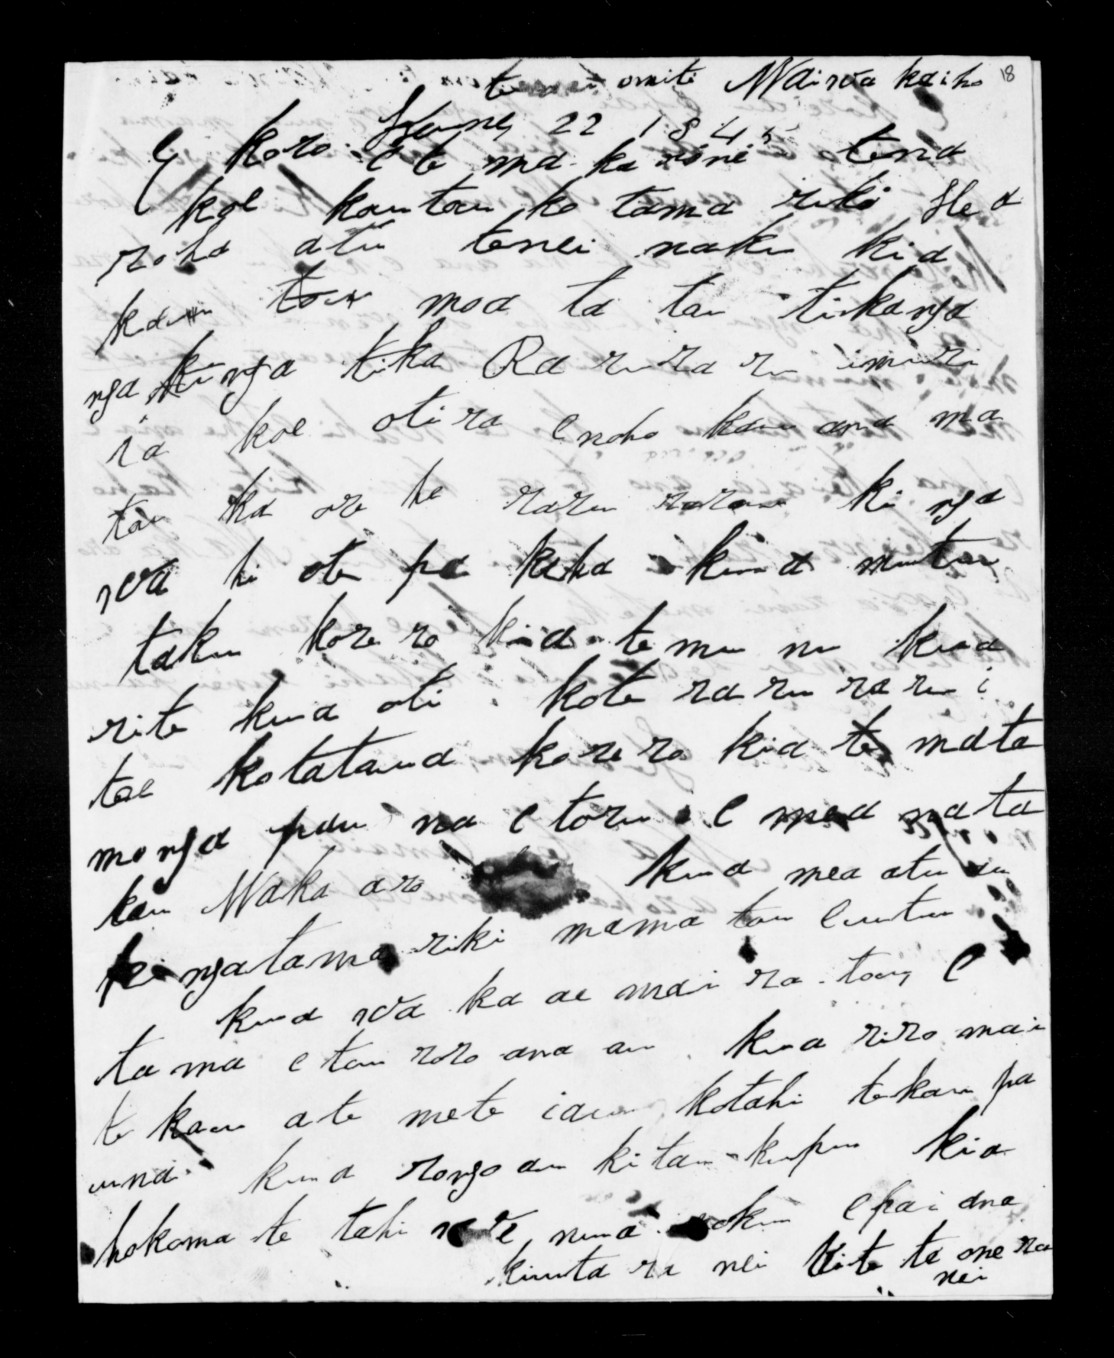 te omite Waiwakaiho 18
June 22 1845
E koro. E te makarini tena
koe koutou ko tamariki He a
roha atu tenei naku kia
koutou mo a ta tau tikanga
nga kinga tika Ra ru ra ru i muri
ra koe otira e noho kau ana ma
tau ka ore he raru raru ki nga
wa hi ote pa keha kua mutu
taku kore ro kia te mu nu kua
rite kua oti. kote ra ru ra ru i
tae kotataua kore ro kia te mata
monga pau na e toru. e mea na ta
kau Waka aro kua mea atu au
ki ngatama riki mama tau e utu
kua wa ka ae mai ra. tau e
ta ma e tau roro ana au. kua riro mai
te kau ate mete iau kotahi tekau pa
una. kua rongo au ki tau kupu kia
hokoma te tahi nuna oku e pai ana
ki uta ra nei kite ta one ra
nei